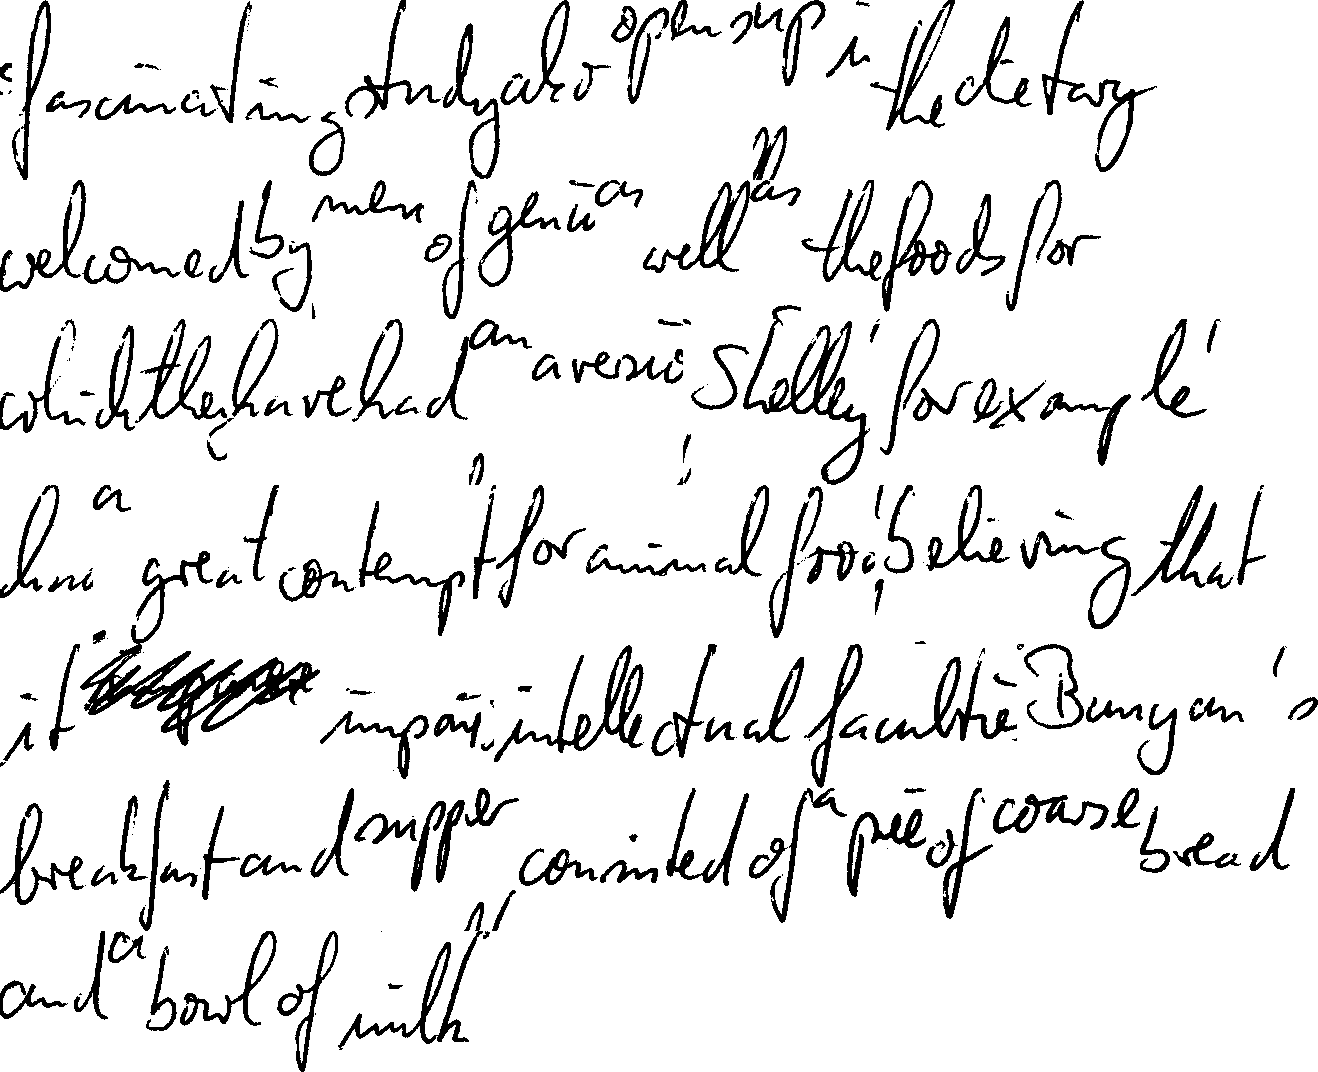 fascinating study also opens up in the dietary
welcomed by men of genius as well as the foods for
which they have had an aversion Shelley, for example,
had a great contempt for animal food, believing that
it impairs intellectual faculties Bunyan's
breakfast and supper consisted of a piece of coarse bread
and a bowl of milk